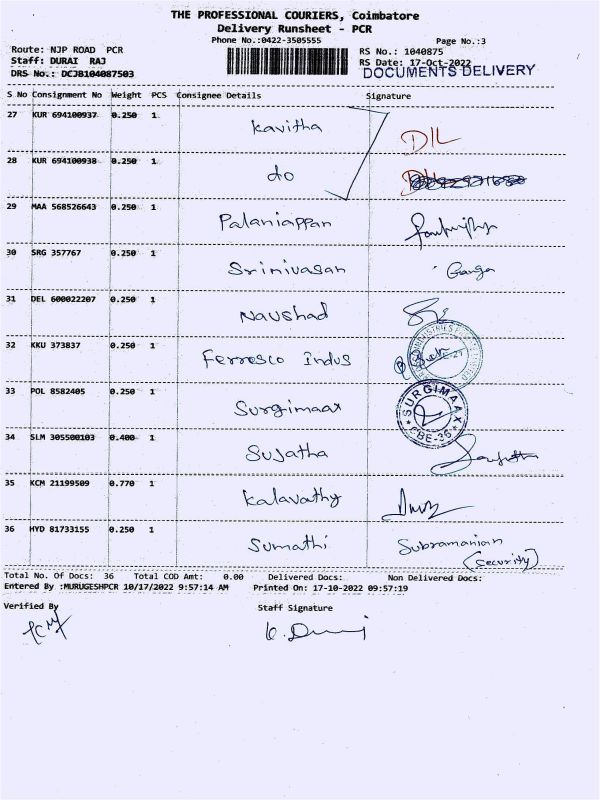 THE PROFESSIONAL COURIERS, Coimbatore
Delivery Runsheet - PCR
Phone No.:0422-3505555
Page No.:3
Route: NJP ROAD PCR
RS No.: 1040875
Staff: DURAI RAJ
RS Date: 17-Oct-2022
DRS No.: DCJB104087503
DOCUMENTS DELIVERY
S No Consignment No Weight PCS Consignee Details Signature
27 KUR 694100937 0.250 1 Kavitha D/L
28 KUR 694100938 0.250 1 do
29 MAA 568526643 0.250 1 Palaniappan
30 SRG 357767 0.250 1 Srinivasan Ganga
31 DEL 600022207 0.250 1 Naushad
32 KKU 373837 0.250 1 Ferresco Indus
33 POL 8582405 0.250 1 Surgimaax
SURGIMAAX
CBE-36
34 SLM 305500103 0.400 1 Sujatha
35 KCM 21199509 0.770 1 Kalavathy
36 HYD 81733155 0.250 1 Sumathi Subramanian
(security)
Total No. Of Docs: 36 Total COD Amt: 0.00 Delivered Docs: Non Delivered Docs:
Entered By :MURUGESHPCR 10/17/2022 9:57:14 AM Printed On: 17-10-2022 09:57:19
Verified By Staff Signature